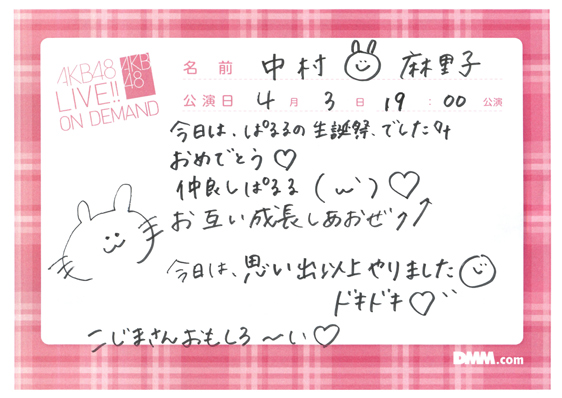 AKB48
LIVE!!
ON DEMAND
AKB
48
名前 中村 麻里子
公演日 4月3日 19:00公演
今日は、ぱるるの生誕祭、でした
おめでとう♡
仲良しぱるる (ω`)♡
お互い成長しあおぜ↗
今日は、思い出以上やりました
ドキドキ♡
こじまさんおもしろ〜い♡
DMM.com